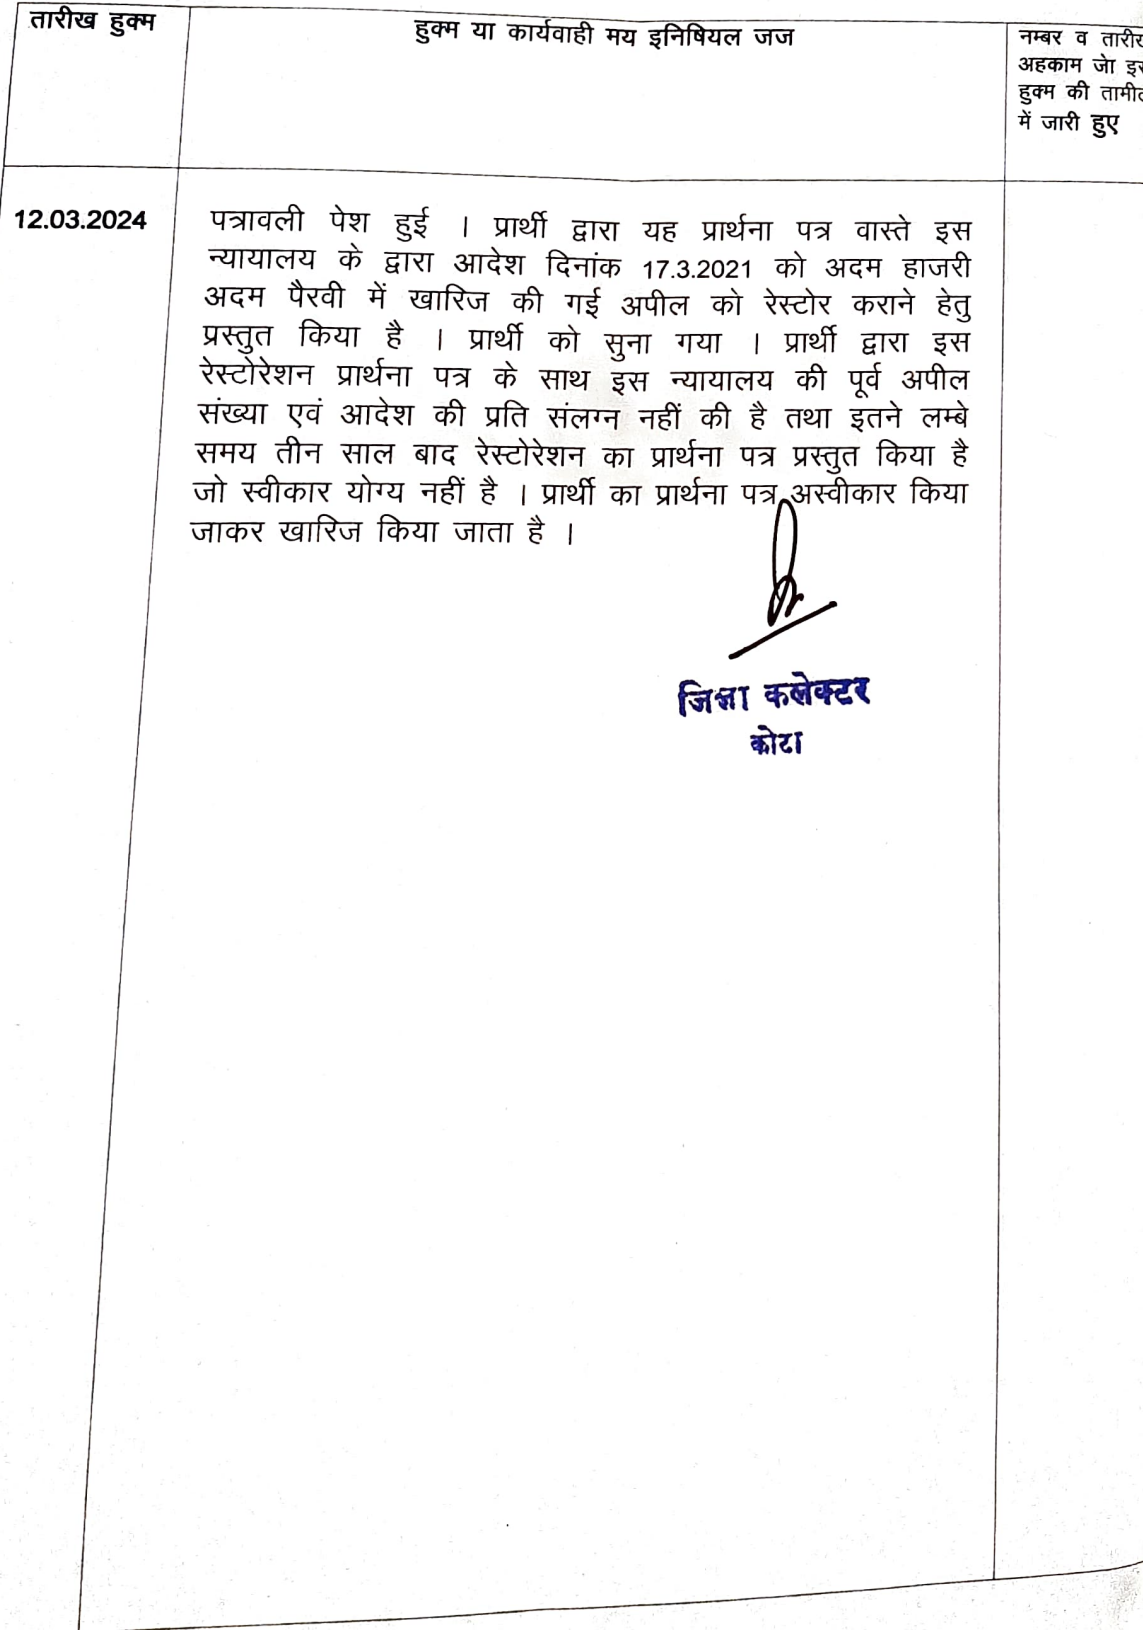 तारीख हुक्म
हुक्म या कार्यवाही मय इनिषियल जज
नम्बर व तारीख
अहकाम जो इस
हुक्म की तामील
में जारी हुए
12.03.2024
पत्रावली पेश हुई । प्रार्थी द्वारा यह प्रार्थना पत्र वास्ते इस
न्यायालय के द्वारा आदेश दिनांक 17.3.2021 को अदम हाजरी
अदम पैरवी में खारिज की गई अपील को रेस्टोर कराने हेतु
प्रस्तुत किया है । प्रार्थी को सुना गया । प्रार्थी द्वारा इस
रेस्टोरेशन प्रार्थना पत्र के साथ इस न्यायालय की पूर्व अपील
संख्या एवं आदेश की प्रति संलग्न नहीं की है तथा इतने लम्बे
समय तीन साल बाद रेस्टोरेशन का प्रार्थना पत्र प्रस्तुत किया है
जो स्वीकार योग्य नहीं है । प्रार्थी का प्रार्थना पत्र अस्वीकार किया
जाकर खारिज किया जाता है ।
जिला कलेक्टर
कोटा